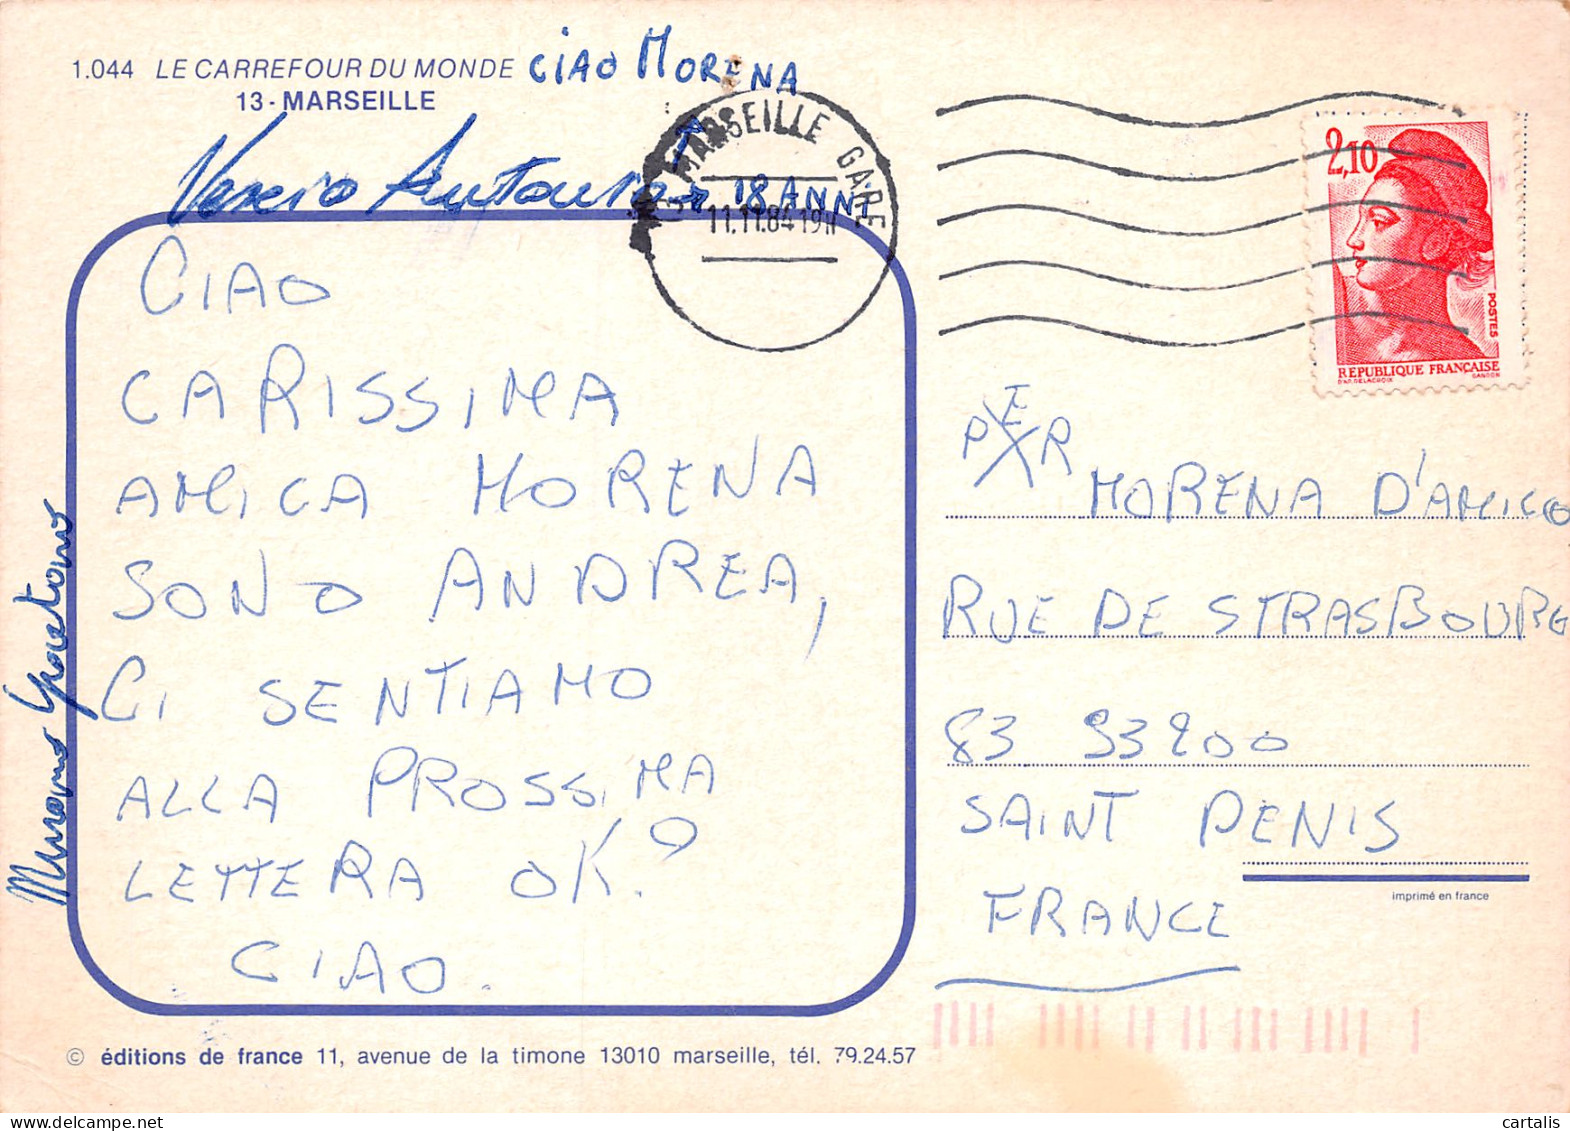 1.044 LE CARREFOUR DU MONDE CIAO MORENA
13-MARSEILLE
MARSEILLE GARE
11.11.84 19H
18 ANNI
2,10
POSTES
REPUBLIQUE FRANÇAISE
D'AP. DELACROIX GANDON
CIAO
CARISSIMA
AMICA MORENA
SONO ANDREA,
CI SENTIAMO
ALLA PROSSIMA
LETTERA OK?
CIAO.
PER
MORENA D'AMICO
RUE DE STRASBOURG
83 93200
SAINT DENIS
FRANCE
imprimé en france
© éditions de france 11, avenue de la timone 13010 marseille, tél. 79.24.57
cartalis